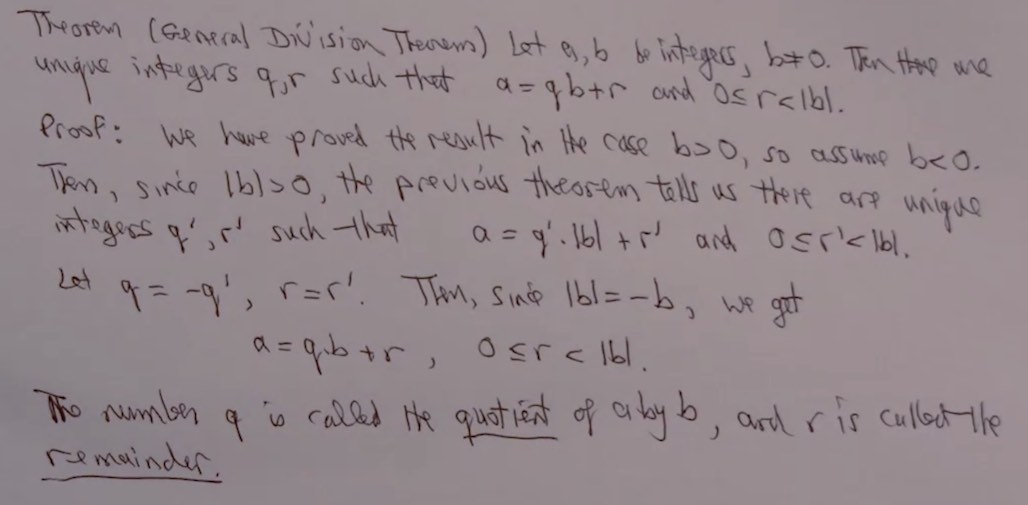 Theorem (General Division Theorem) Let a, b be integers, b≠0. Then there are
unique integers q,r such that a=qb+r and 0≤r<|b|.
Proof: We have proved the result in the case b>0, so assume b<0.
Then, since |b|>0, the previous theorem tells us there are unique
integers q', r' such that a = q'.|b| + r' and 0≤r'<|b|.
Let q = -q', r=r'. Then, since |b|=-b, we get
a = q.b + r, 0≤r<|b|.
The number q is called the quotient of a by b, and r is called the
remainder.